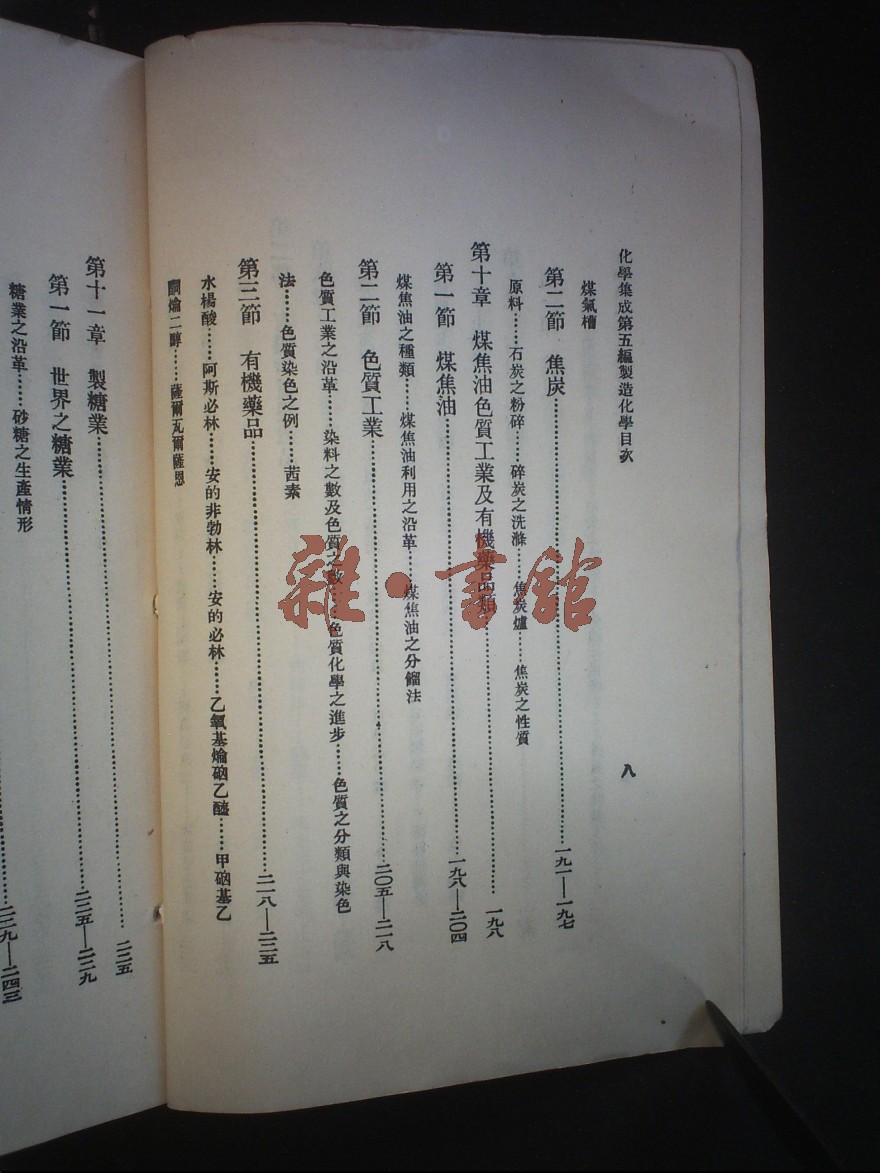 化學集成第五編製造化學目次
八
煤氣槽
第二節　焦炭……一九一—一九七
原料……石炭之粉碎……碎炭之洗滌……焦炭爐……焦炭之性質
第十章　煤焦油色質工業及有機藥品類……一九八
第一節　煤焦油……一九八—二〇四
煤焦油之種類……煤焦油利用之沿革……煤焦油之分餾法
第二節　色質工業……二〇五—二一八
色質工業之沿革……染料之數及色質之數……色質化學之進步……色質之分類與染色
法……色質染色之例……茜素
第三節　有機藥品……二一八—二三五
水楊酸……阿斯必林……安的非勃林……安的必林……乙氧基𤆬碯乙醯……甲碯基乙
二醇……薩爾瓦爾薩恩
第十一章　製糖業……二三五
第一節　世界之糖業……二三五—二三九
糖業之沿革……砂糖之生產情形
二三九—二四三
雜·書館